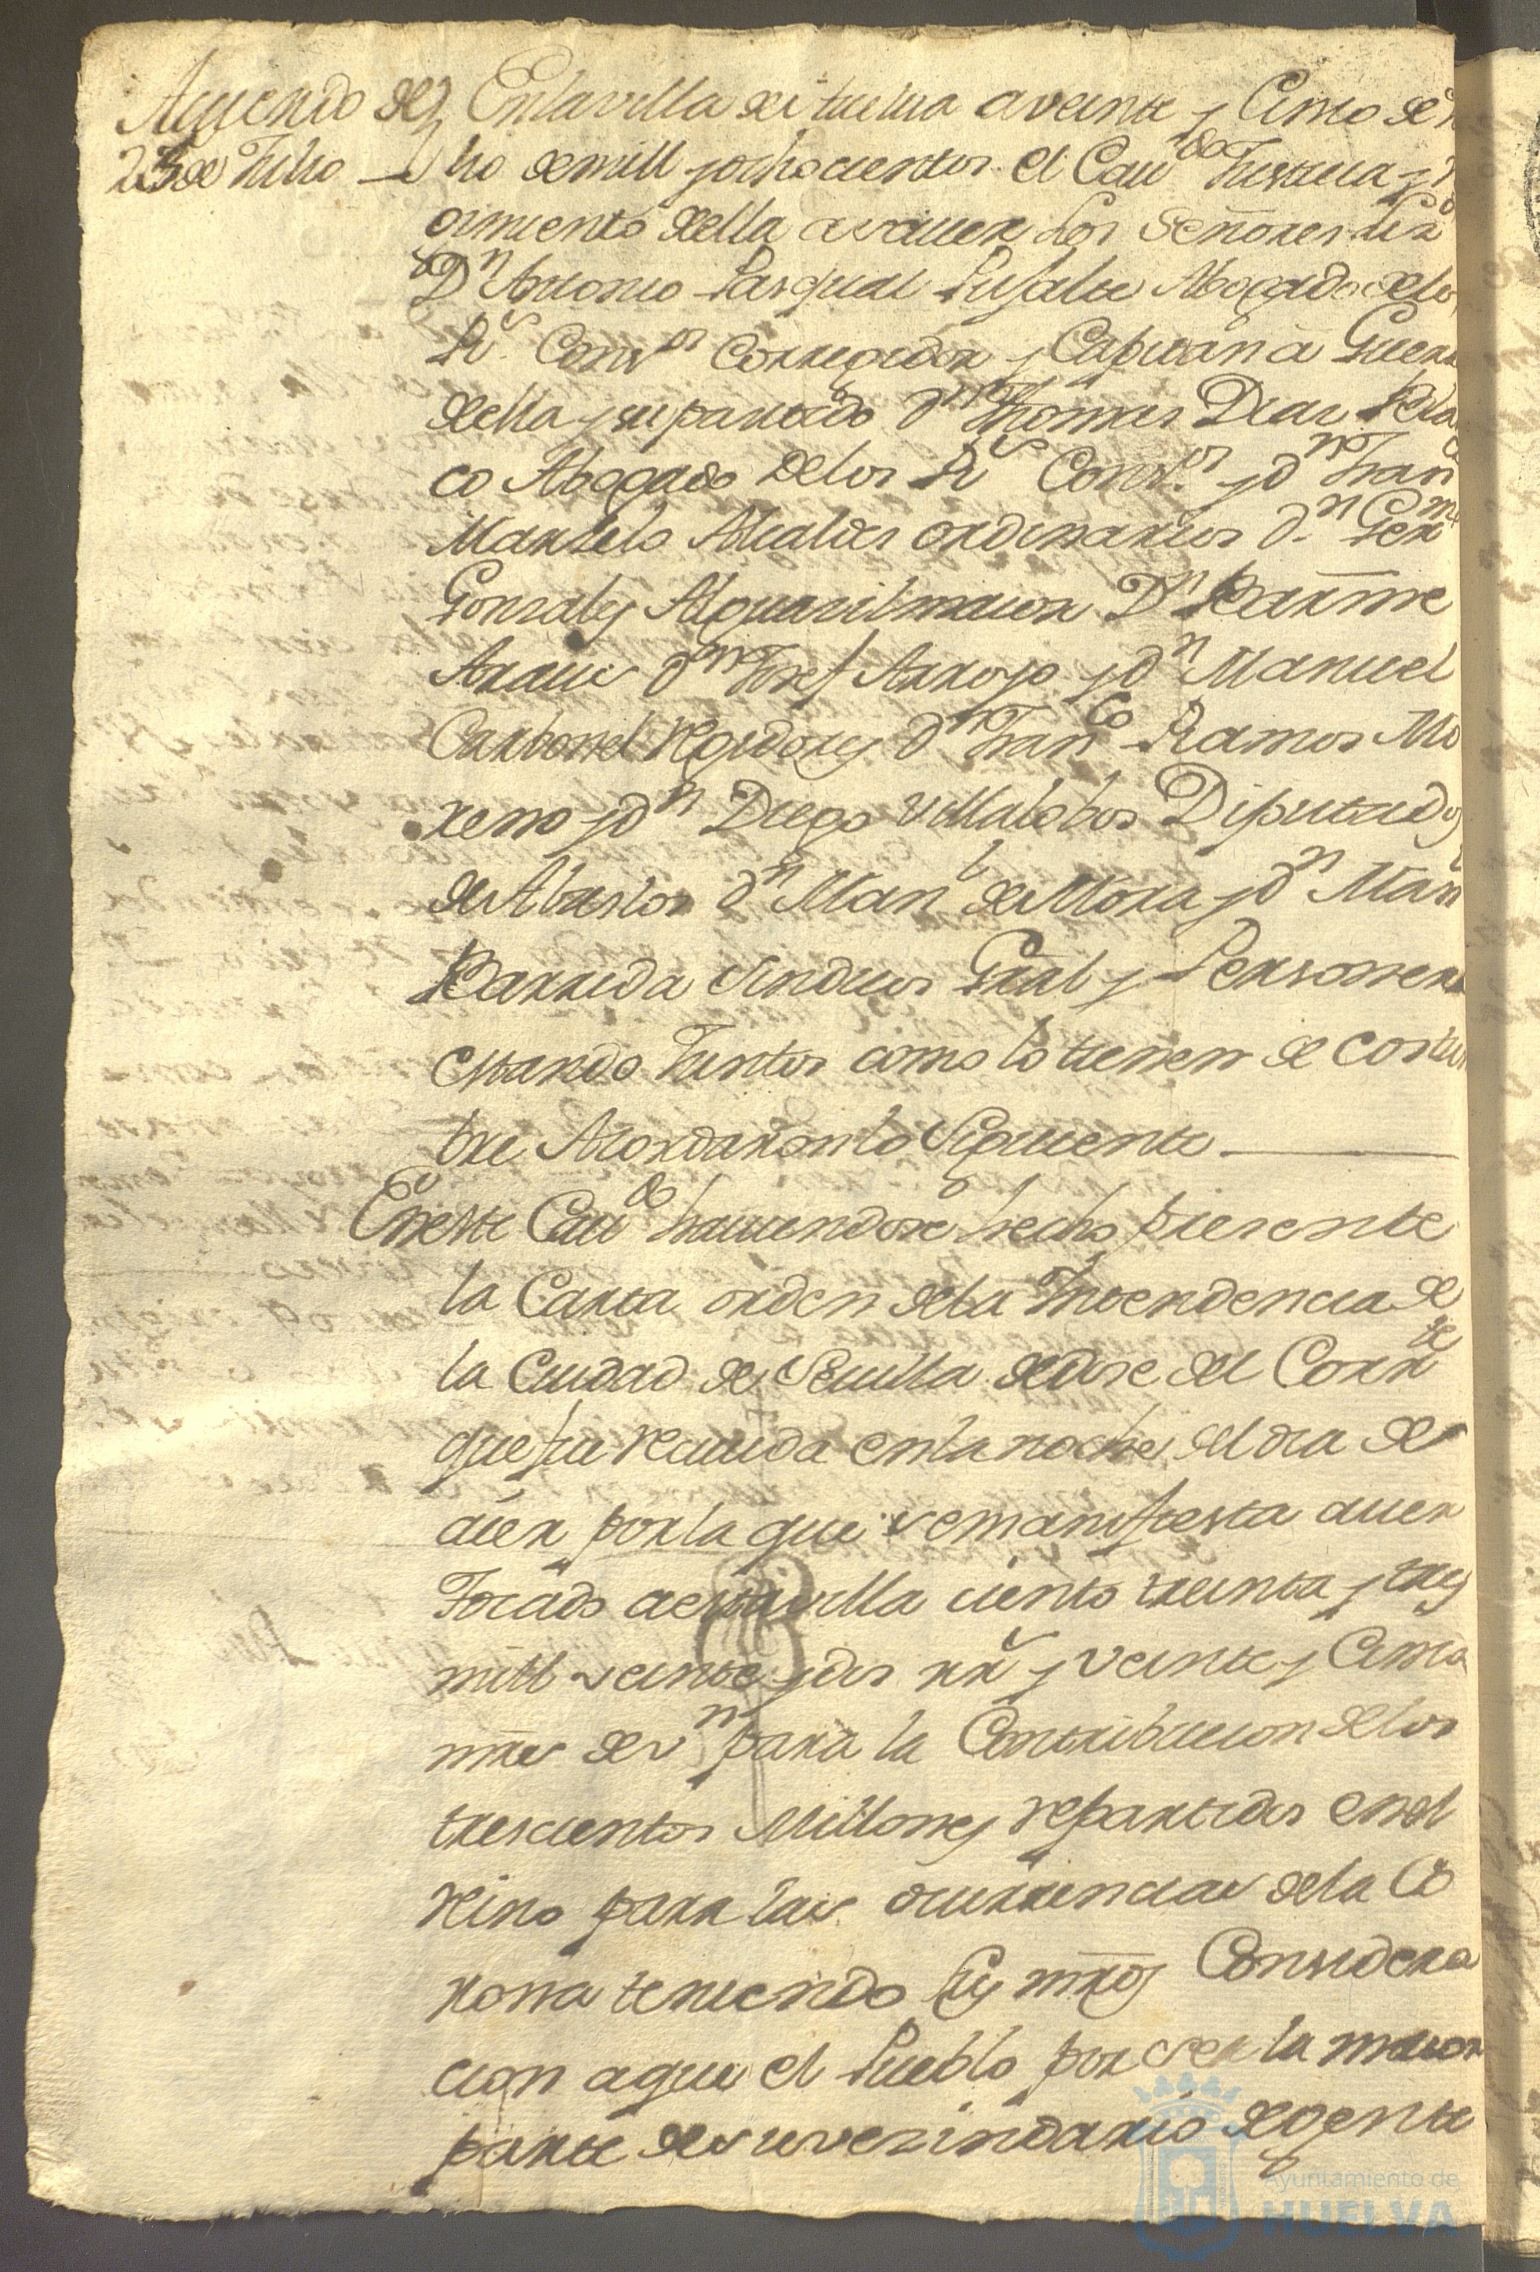 Acuerdo de
25 de Julio
En la villa de Huelva a veinte y Cinco de
lio de mill y ochocientos el Cavdo Justicia y
gimiento della a saver los Señores Lizdo
Dn Antonio Pasqual Pusalte Abogado de los
Rs. Consos Corregidor y Capitan a Guerra
della y su partido Dn Thomas Dias
co Abogado de los Rs Consos y dn Franco
Manzelo Alcaldes ordinarios dn Germo
Gonzales Alguacil maior Dn Barme
Arauz dn Josef Arroyo y dn Manuel
Carbonel Regidores dn Franco Ramos Mo
reno y dn Diego Villalobos Diputados
de Abastos dn Manl de Mora y dn Manl
Barreda Sindicos Gral y Personero
estando Juntos como lo tienen de costum
bre Acordaron lo Siguiente
En este Cavdo haviendose hecho presente
la Carta orden de la Intendencia de
la Ciudad de Sevilla de dose del Corrte
que fue recivida en la noche del dia de
aier por la que se manifiesta aver
Tocado a esta villa ciento treinta y tres
mill veinte y dos rrs y veinte y Cinco
mrs de vn para la Contribucion de los
trescientos Millones repartidos en el
reino para las ocurrencias de la Co
rona teniendo sus mrds Considera
cion a que el Pueblo por ser la maior
parte de su vezindario de gente
Ayuntamiento de
HUELVA